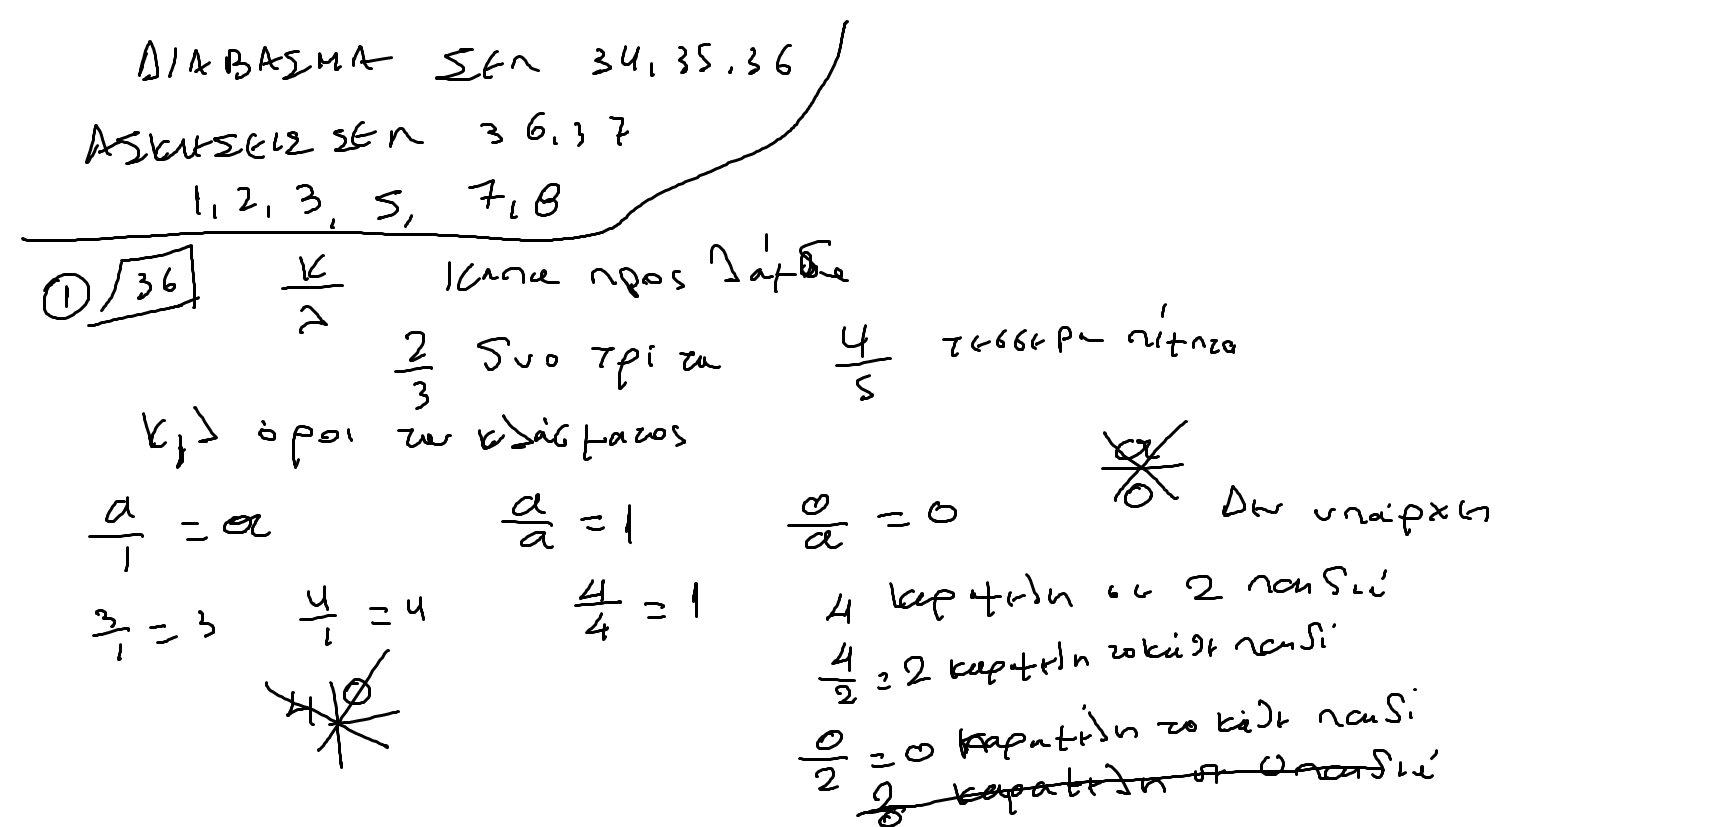 ΔΙΑΒΑΣΜΑ ΣΕΛ 34, 35, 36
ΑΣΚΗΣΕΙΣ ΣΕΛ 36, 37
1, 2, 3, 5, 7, 8
① 36 κ/λ κάπα προς λάμδα
2/3 δυο τρίτα 4/5 τέσσερα πέμπτα
κ, λ όροι του κλάσματος
α/1 = α α/α = 1 0/α = 0 α/0 Δεν υπάρχει
3/1 = 3 4/1 = 4 4/4 = 1 4 καραμέλλη σε 2 παιδιά
4/2 = 2 καραμέλλη το κάθε παιδί
4 0
0/2 = 0 καραμέλλη το κάθε παιδί
2/0 καραμέλλη σε 0 παιδιά